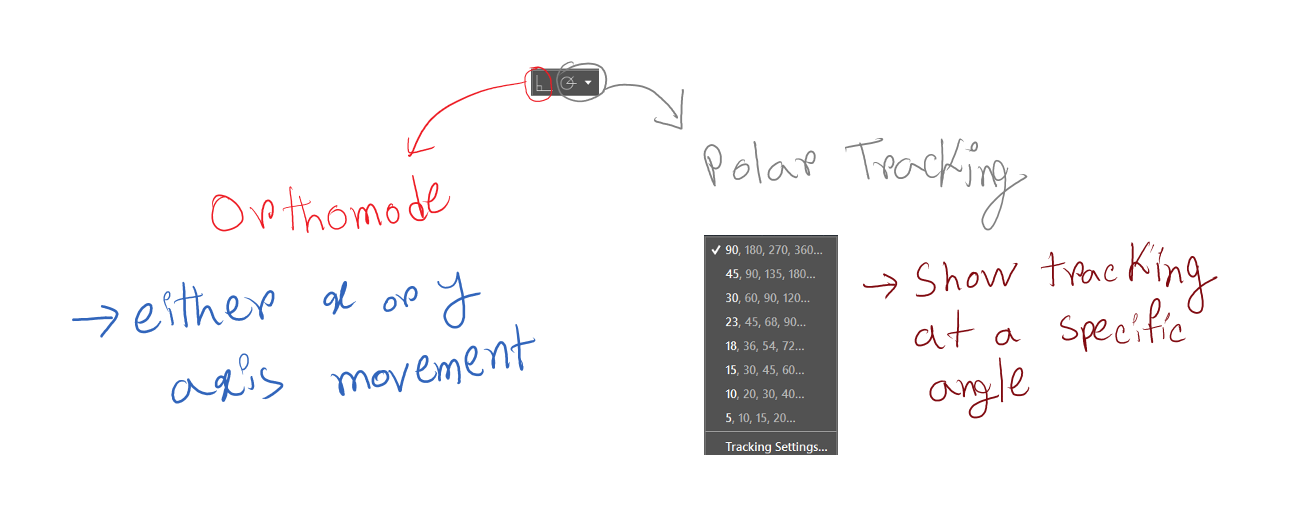 Orthomode
→ either x or y
axis movement
Polar Tracking
✓ 90, 180, 270, 360...
45, 90, 135, 180...
30, 60, 90, 120...
23, 45, 68, 90...
18, 36, 54, 72...
15, 30, 45, 60...
10, 20, 30, 40...
5, 10, 15, 20...
Tracking Settings...
→ Show tracking
at a specific
angle